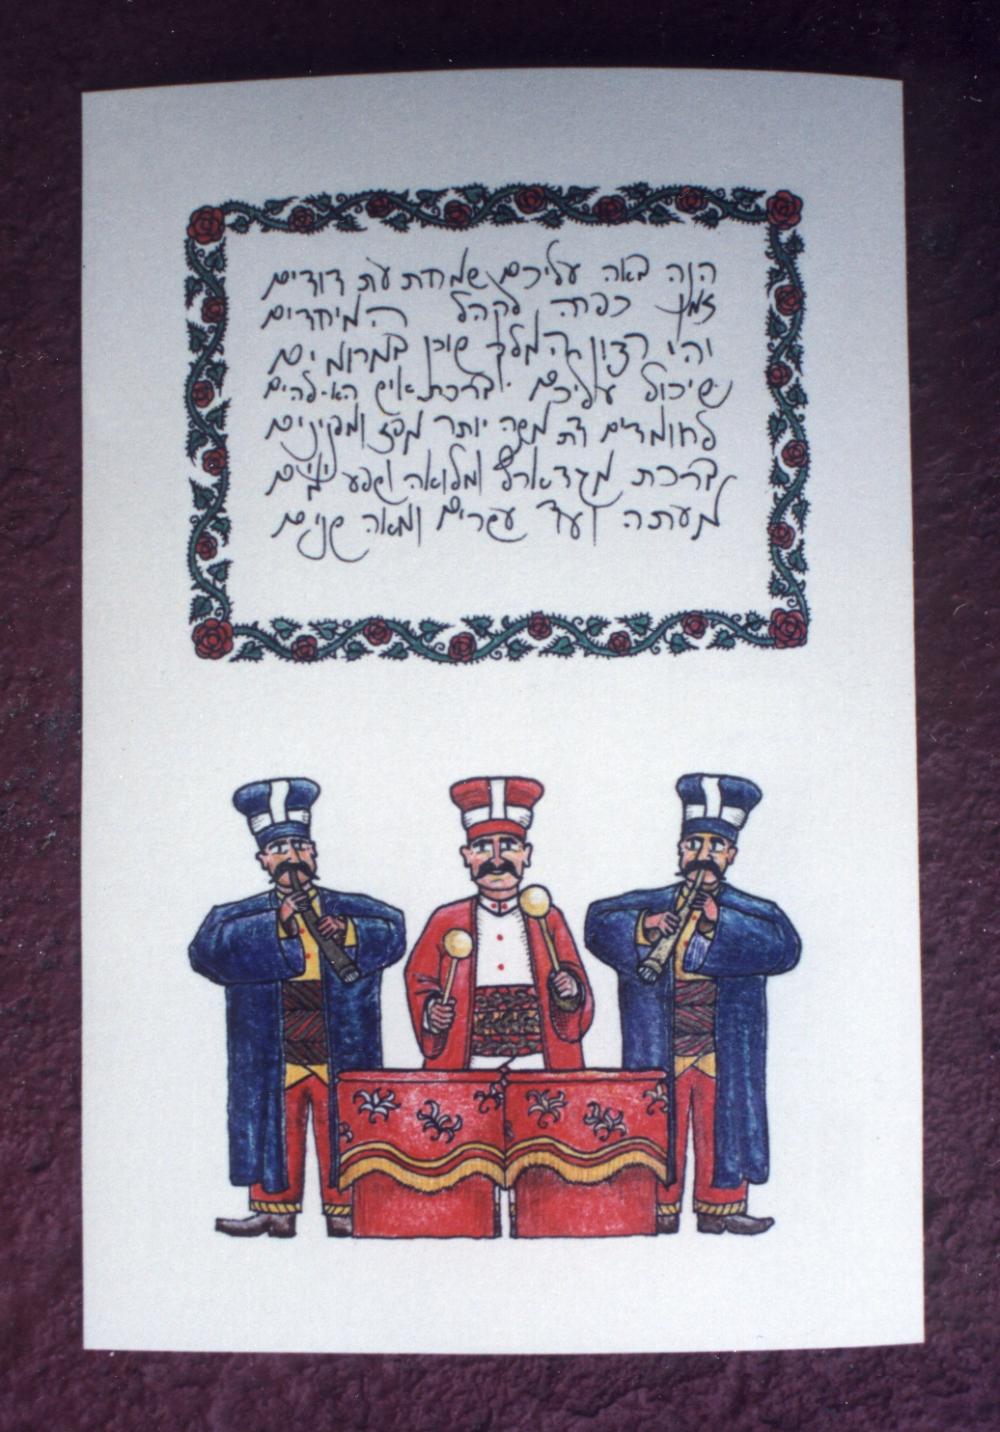 הנה באה עליכם שמחת עת דודים
זמנו כפחה לקהל המיחדים
ויהי רצון המלך שוכן במרומים
שיכול עליכם ברכת איש האילהים
לחומדים דת משה יותר מפז ומפנינים
ברכת מגד ארץ ומלואה ושפע
מעתה ועד עשרים ומאה שנים